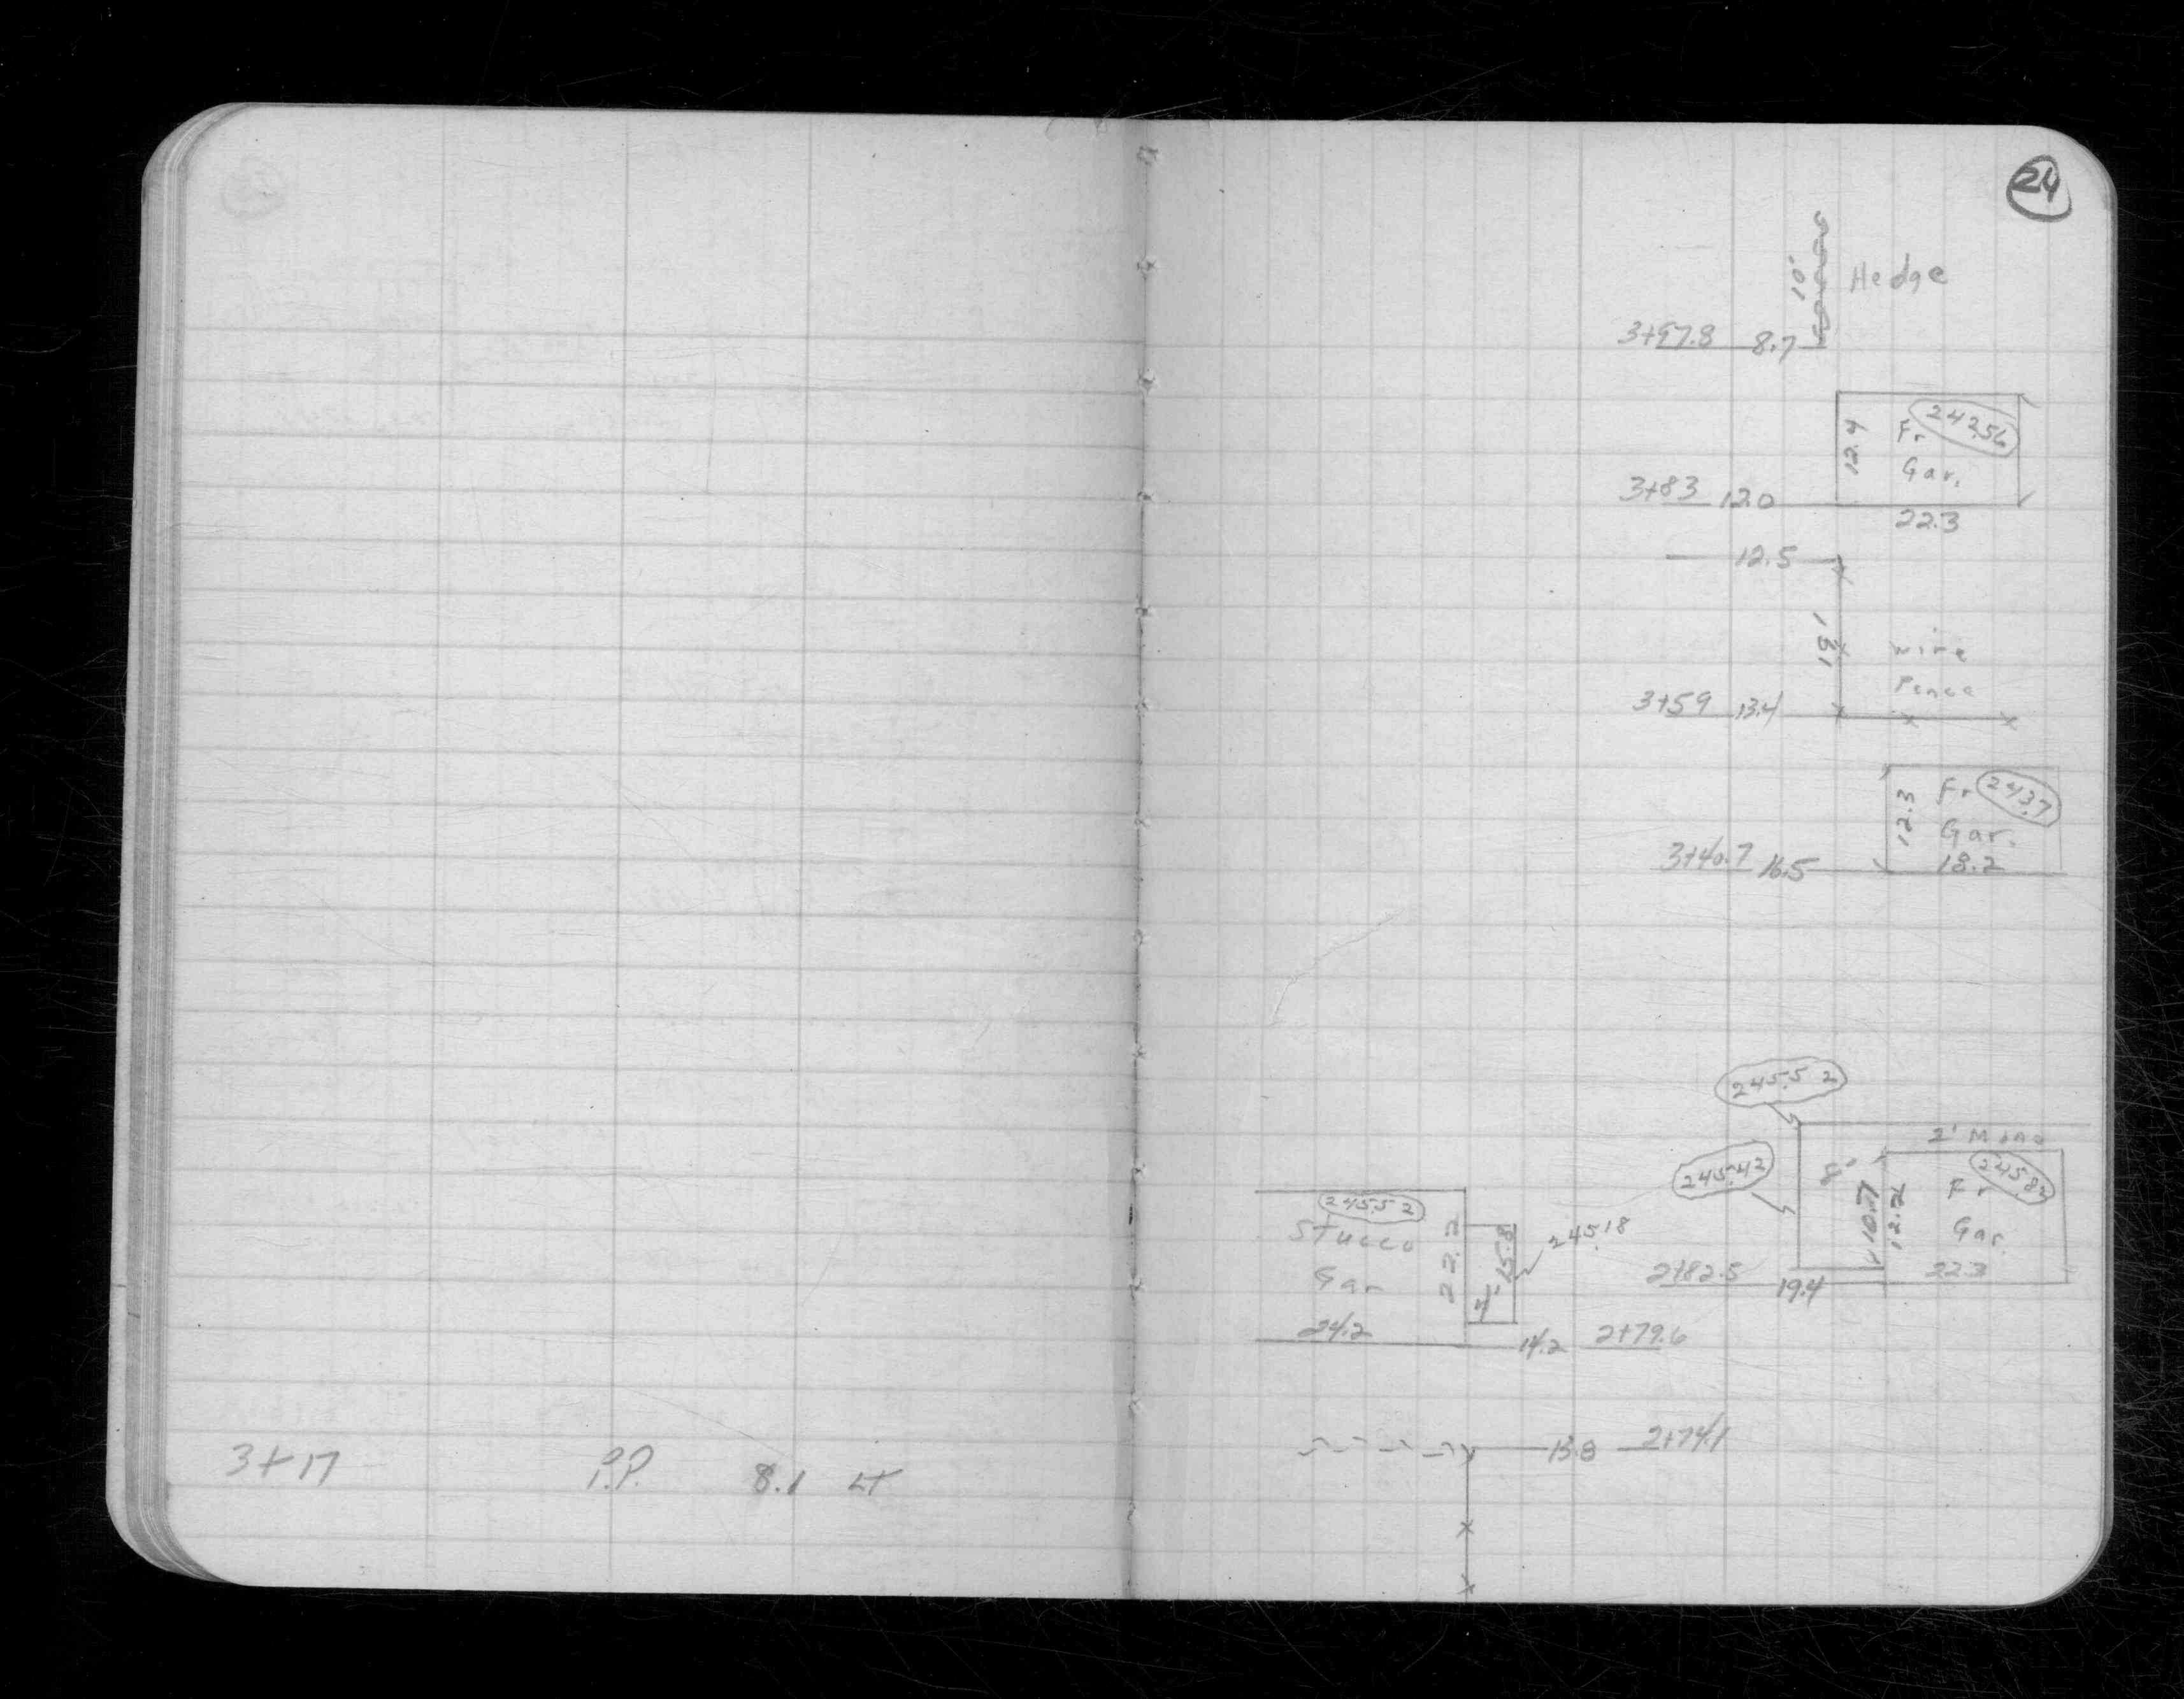 3+17 P.P. 8.1 LT
24
10' Hedge
3+97.8 8.7
242.56
12.4 Fr
Gar.
3+83 12.0
22.3
12.5
19'
wire
Fence
3+59 13.4
12.3 Fr 243.7
Gar.
3+40.7 16.5 18.2
245.52
2' Mono
245.42 8' 245.82
10.7 12.2 Fr
Gar.
2+82.5 19.4 22.3
245.52
Stucco 22.2 15.8 245.18
Gar 4'
24.2
14.2 2+79.6
13.8 2+74.1